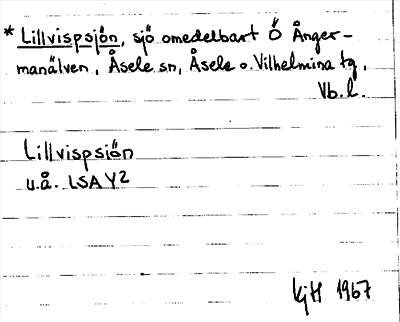 * Lillvispsjön, sjö omedelbart Ö Ånger-
manälven, Åsele sn, Åsele o. Vilhelmina tg,
Vb. l.
Lillvispsjön
u.å. LSA Y2
KjH 1967